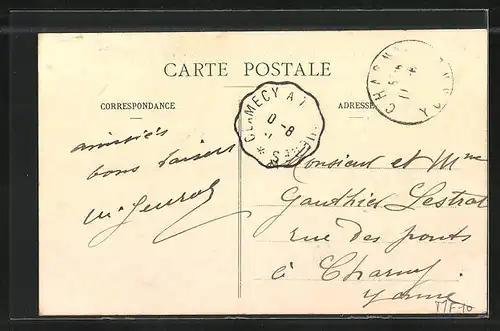 CARTE POSTALE
CORRESPONDANCE
ADRESSE
CLAMECY A
8-0
CHARNY
amitiés
bons baisers
Monsieur et Mme
Gauthier Lestrat
rue des ponts
à Charny
Yonne
MF-10